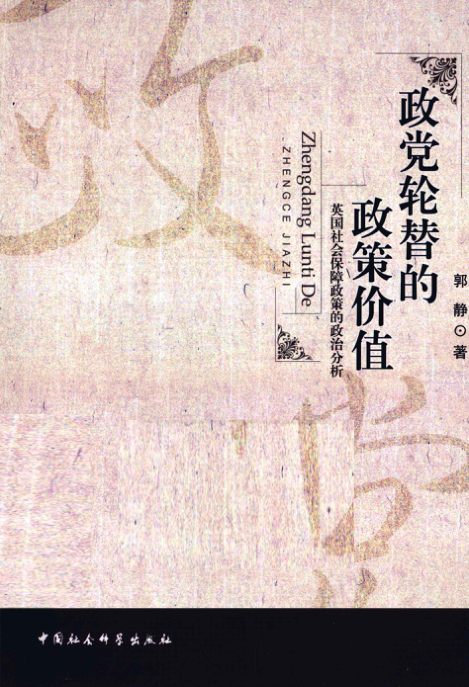 政党轮替的
政策价值
英国社会保障政策的政治分析
Zhengdang Lunti De
ZHENGCE JIAZHI
郭 静⊙著
中国社会科学出版社